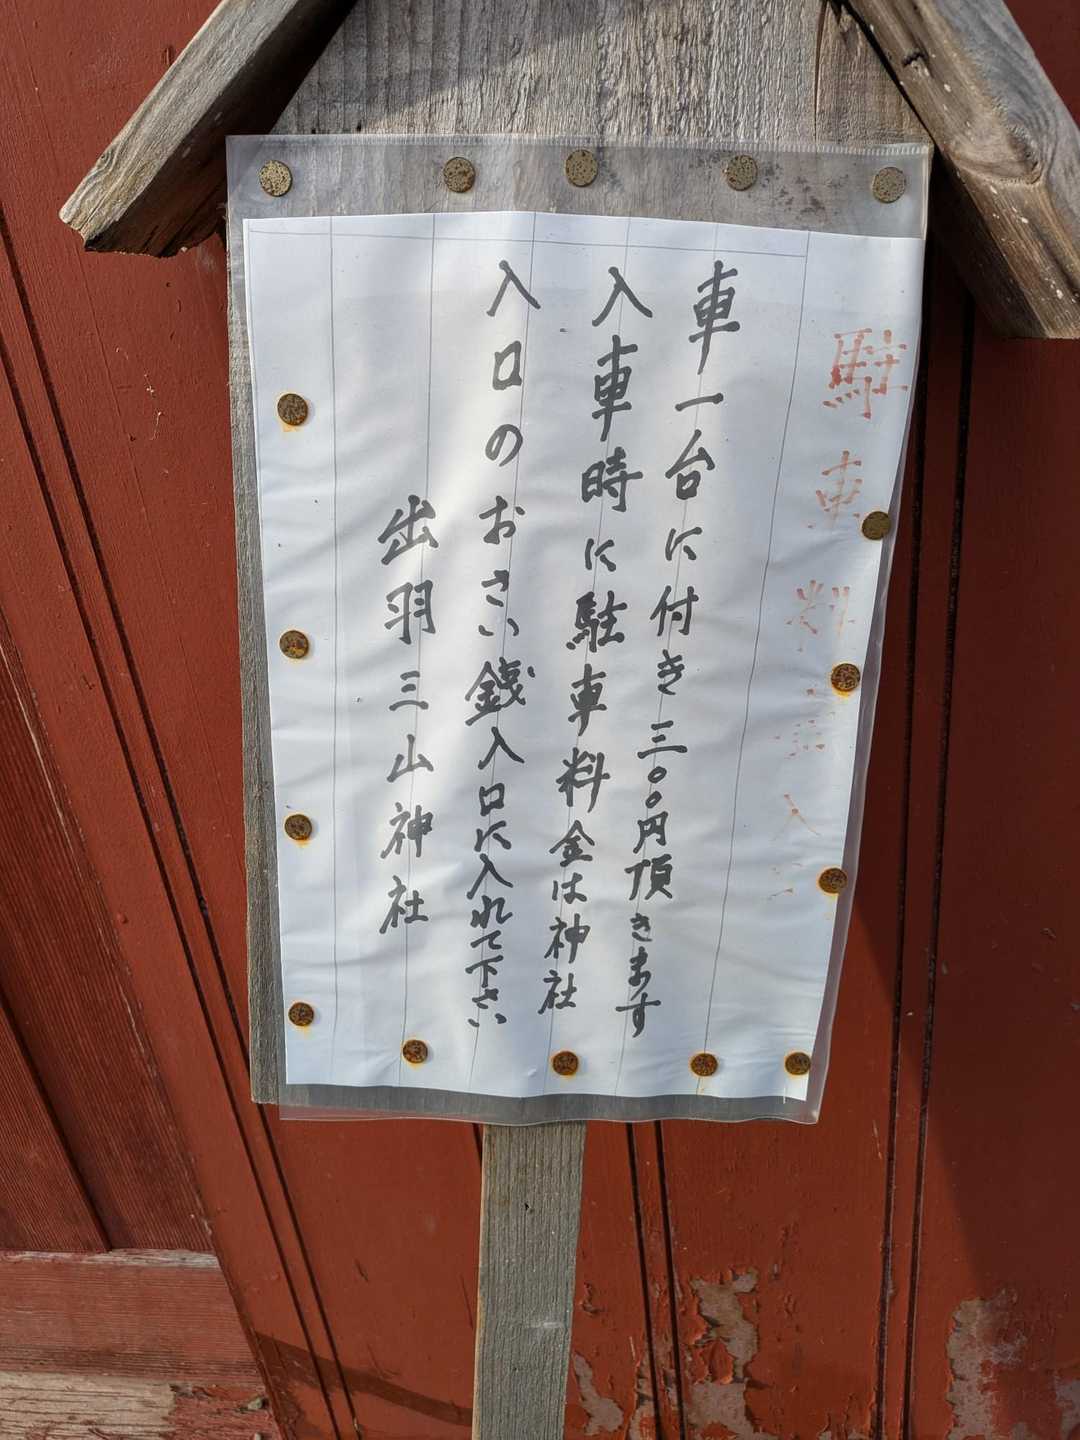 駐車料
車一台に付き三〇〇円頂きます
入車時に駐車料金は神社
入口のおさい銭入口に入れて下さい
出羽三山神社